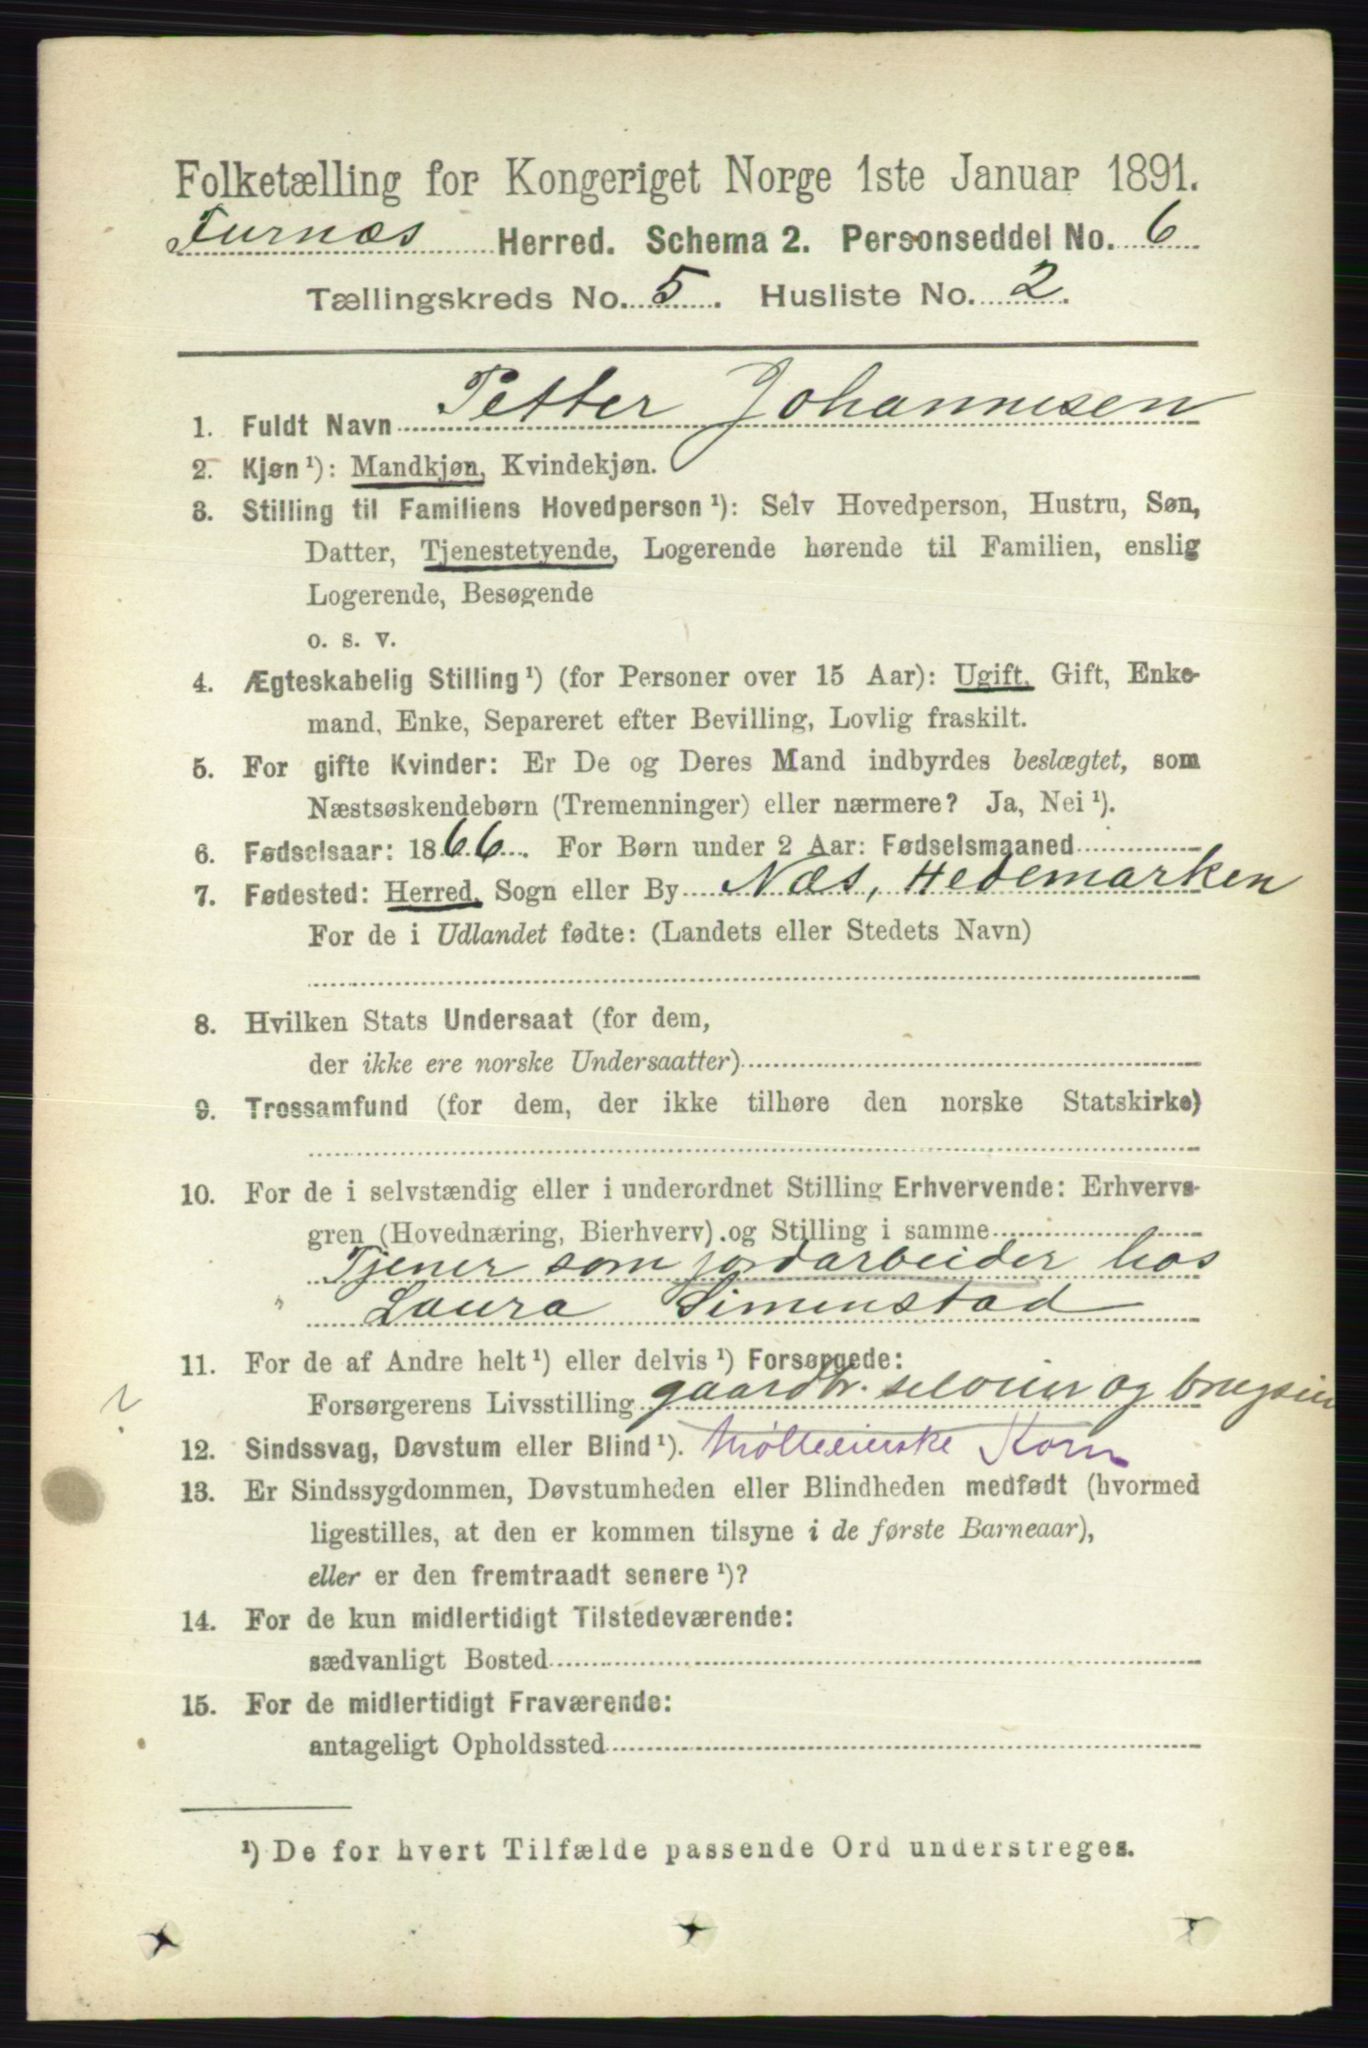 Folketælling for Kongeriget Norge 1ste Januar 1891.
Furnæs Herred. Schema 2. Personseddel No. 6
Tællingskreds No. 5. Husliste No. 2.
1. Fuldt Navn Petter Johannesen
2. Kjøn ¹): Mandkjøn, Kvindekjøn.
3. Stilling til Familiens Hovedperson ¹): Selv Hovedperson, Hustru, Søn,
Datter, Tjenestetyende, Logerende hørende til Familien, enslig
Logerende, Besøgende
o. s. v.
4. Ægteskabelig Stilling ¹) (for Personer over 15 Aar): Ugift, Gift, Enke-
mand, Enke, Separeret efter Bevilling, Lovlig fraskilt.
5. For gifte Kvinder: Er De og Deres Mand indbyrdes beslægtet, som
Næstsøskendebørn (Tremenninger) eller nærmere? Ja, Nei ¹).
6. Fødselsaar: 1866. For Børn under 2 Aar: Fødselsmaaned
7. Fødested: Herred, Sogn eller By Næs, Hedemarken
For de i Udlandet fødte: (Landets eller Stedets Navn)
8. Hvilken Stats Undersaat (for dem,
der ikke ere norske Undersaatter)
9. Trossamfund (for dem, der ikke tilhøre den norske Statskirke)
10. For de i selvstændig eller i underordnet Stilling Erhvervende: Erhvervs-
gren (Hovednæring, Bierhverv) og Stilling i samme
Tjener som jordarbeider hos
" Laura Simenstad
11. For de af Andre helt ¹) eller delvis ¹) Forsørgede:
Forsørgerens Livsstilling gaardbr. selveier og
12. Sindssvag, Døvstum eller Blind ¹). Korn
13. Er Sindssygdommen, Døvstumheden eller Blindheden medfødt (hvormed
ligestilles, at den er kommen tilsyne i de første Barneaar),
eller er den fremtraadt senere ¹)?
14. For de kun midlertidigt Tilstedeværende:
sædvanligt Bosted
15. For de midlertidigt Fraværende:
antageligt Opholdssted
¹) De for hvert Tilfælde passende Ord understreges.